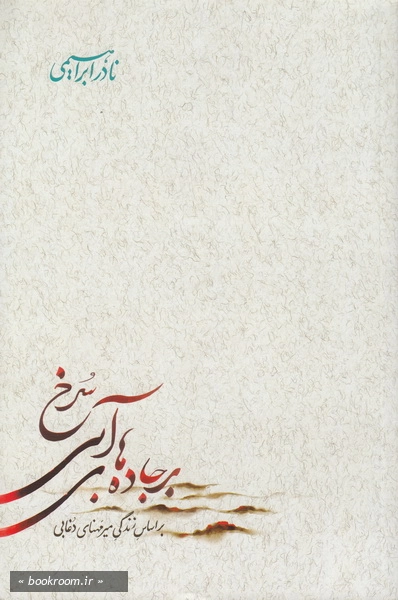 نادر ابراهیمی
بر جاده‌های آبی سُرخ
بر اساس زندگی میرمهنای دُغابی
« bookroom.ir »